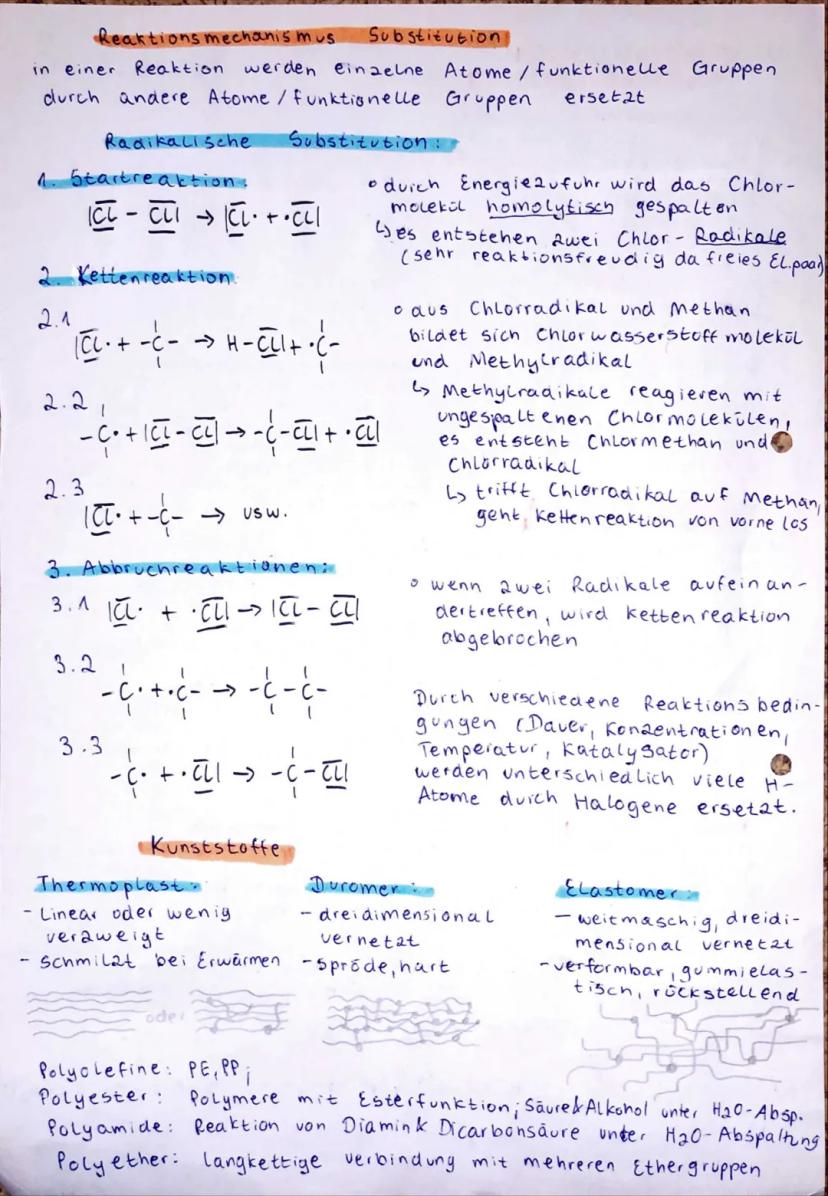 Reaktionsmechanismus Substitution
in einer Reaktion werden einzelne Atome/funktionelle Gruppen
durch andere Atome/funktionelle Gruppen ersetzt
Radikalische Substitution:
1. Startreaktion:
|Cl - Cl| → |Cl· + ·Cl|
• durch Energiezufuhr wird das Chlor-
molekül homolytisch gespalten
↳ es entstehen zwei Chlor-Radikale
(sehr reaktionsfreudig da freies El.paar)
2. Kettenreaktion
2.1
|Cl· + -C- → H-Cl| + ·C-
2.2
-C· + |Cl - Cl| → -C-Cl| + ·Cl|
2.3
|Cl· + -C- → usw.
• aus Chlorradikal und Methan
bildet sich Chlorwasserstoffmolekül
und Methylradikal
↳ Methylradikale reagieren mit
ungespaltenen Chlormolekülen,
es entsteht Chlormethan und
Chlorradikal
↳ trifft Chlorradikal auf Methan,
geht Kettenreaktion von vorne los
3. Abbruchreaktionen:
3.1 |Cl· + ·Cl| → |Cl - Cl|
3.2
-C· + ·C- → -C-C-
3.3
-C· + ·Cl| → -C-Cl|
• wenn zwei Radikale aufeinan-
dertreffen, wird Kettenreaktion
abgebrochen
Durch verschiedene Reaktionsbedin-
gungen (Dauer, Konzentrationen,
Temperatur, Katalysator)
werden unterschiedlich viele H-
Atome durch Halogene ersetzt.
Kunststoffe
Thermoplast:
- Linear oder wenig
verzweigt
- schmilzt bei Erwärmen
oder
Duromer:
- dreidimensional
vernetzt
- spröde, hart
Elastomer:
- weitmaschig, dreidi-
mensional vernetzt
- verformbar, gummielas-
tisch, rückstellend
Polyolefine: PE, PP;
Polyester: Polymere mit Esterfunktion; Säure & Alkohol unter H2O-Absp.
Polyamide: Reaktion von Diamin & Dicarbonsäure unter H2O-Abspaltung
Polyether: langkettige verbindung mit mehreren Ethergruppen